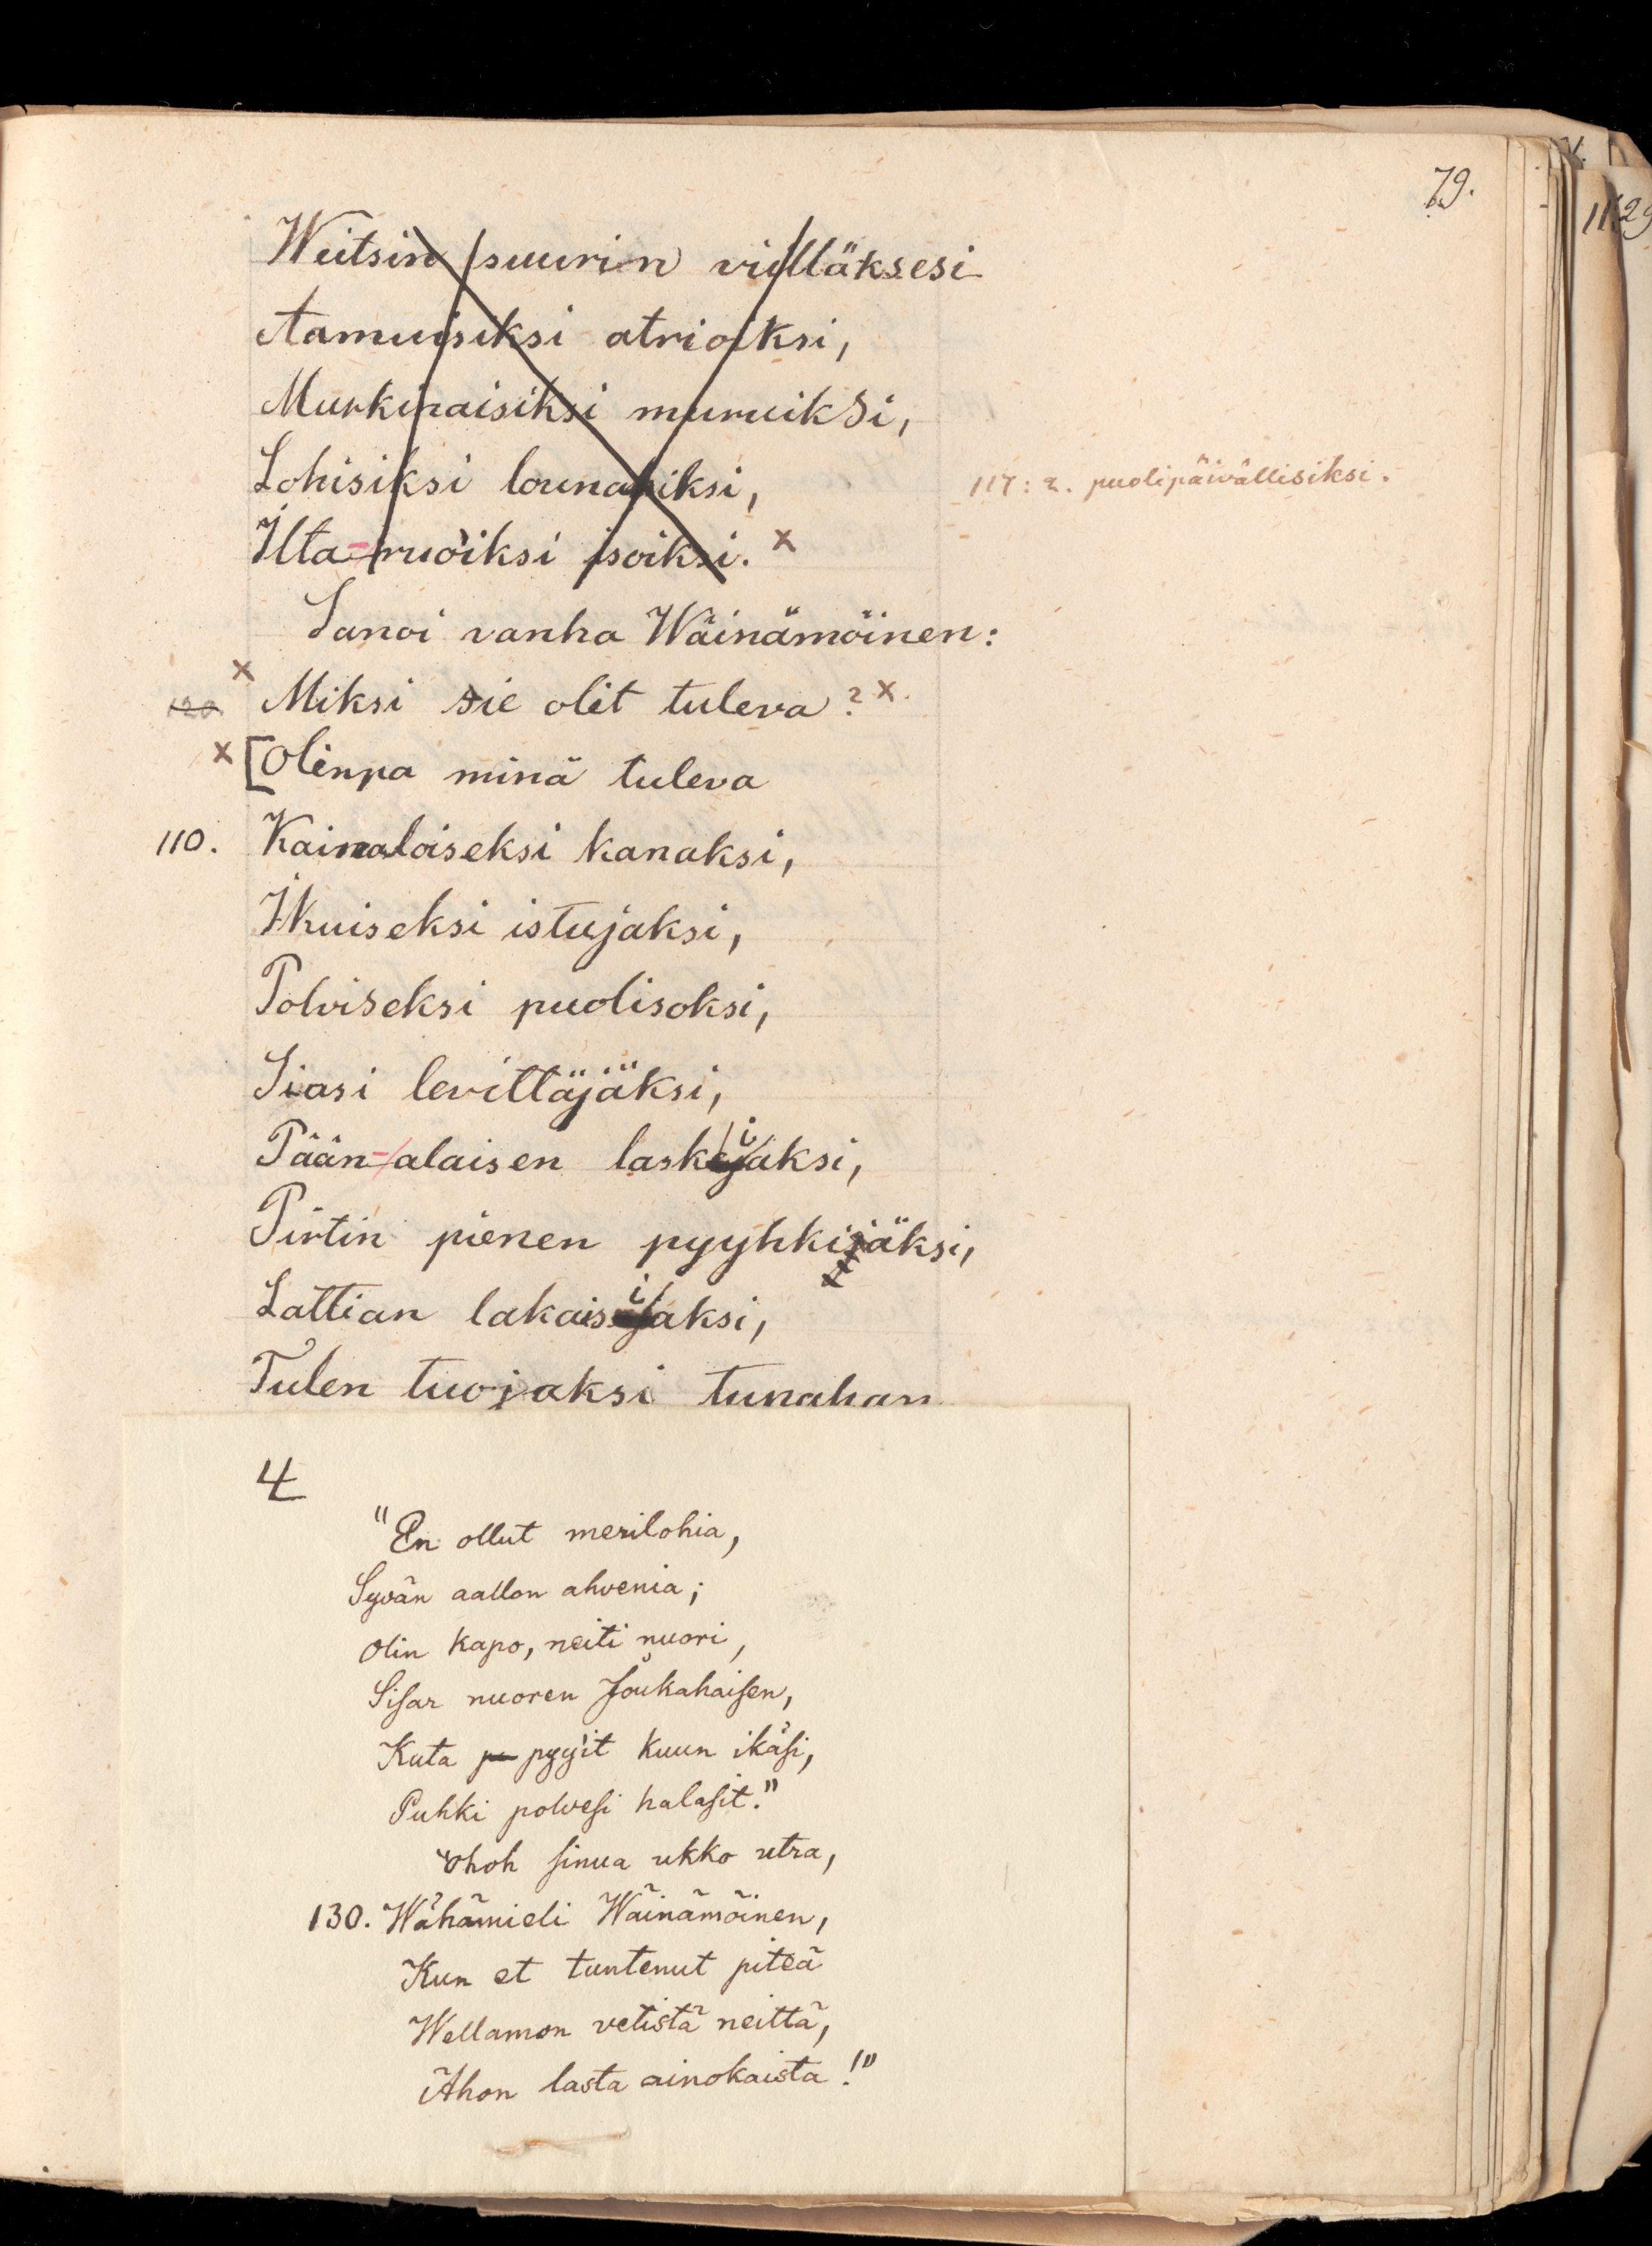 79.
Weitsin suurin viilläksesi
Aamuisiksi atrioiksi,
Murkinaisiksi muruiksi,
Lohisiksi lounahiksi,
117: 2. puolipäivällisiksi.
Ilta-ruoiksi isoiksi. x
Sanoi vanha Wäinämöinen:
x
120 Miksi sie olit tuleva? x.
x [Olinpa minä tuleva
110. Kainaloiseksi kanaksi,
Ikuiseksi istujaksi,
Polviseksi puolisoksi,
Siasi levittäjäksi,
Pään-alaisen laskijaksi,
Pirtin pienen pyyhkijäksi,
Lattian lakaisijaksi,
Tulen tuojaksi tupahan
4
"En ollut merilohia,
Syvän aallon ahvenia;
Olin kapo, neiti nuori,
Sisar nuoren Joukahaisen,
Kuta pu pyyit kuun ikäsi,
Puhki polvesi halasit."
"Ohoh sinua ukko utra,
130. Wähämieli Wäinämöinen,
Kun et tuntenut piteä
Wellamon vetistä neittä,
Ahon lasta ainokaista!"